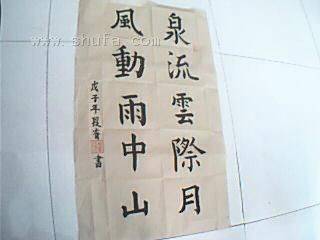 泉流雲際月
風動雨中山
戊子年段育書
www.shufa.com